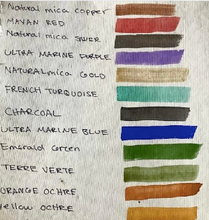 Natural mica copper
MAYAN RED
Natural mica SILVER
ULTRA MARINE PURPLE
NATURAL mica GOLD
FRENCH TURQUOISE
CHARCOAL
ULTRA MARINE BLUE
Emerald Green
TERRE VERTE
ORANGE OCHRE
Yellow OCHRE